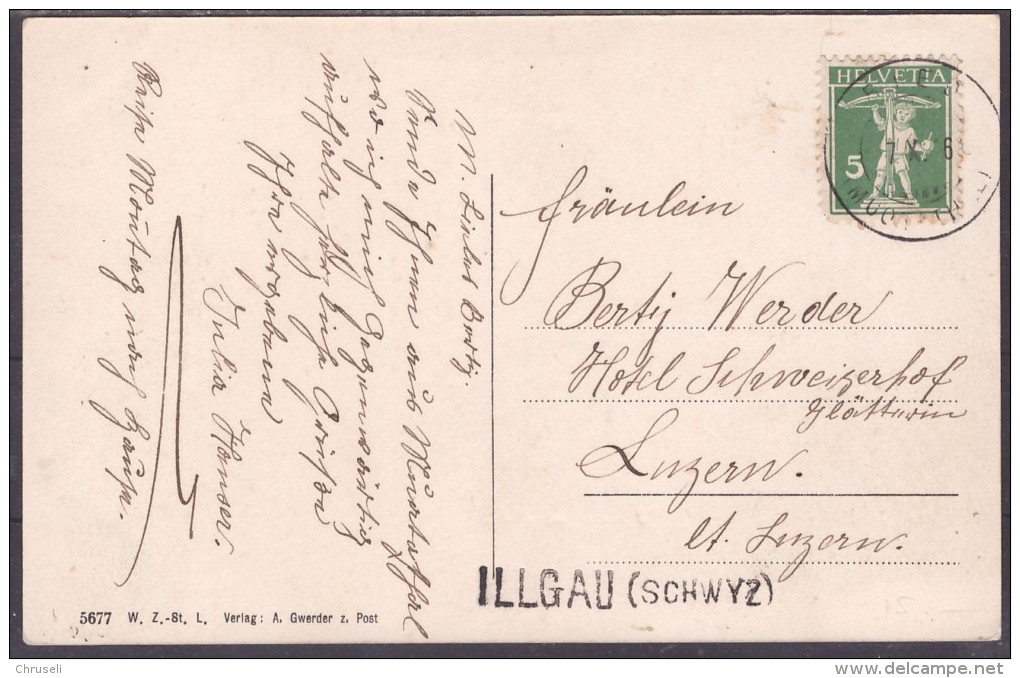 M. Liebes Bertÿ.
Sende Ihnen aus Muotathal
wo ich mich gegenwärtig
aufhalte herzliche Grüsse
Ihre ergebene
Julia
Reise Montag nach Hause.
HELVETIA
5
Fräulein
Bertÿ Werder
Hotel Schweizerhof
Glätterin
Luzern.
Ct. Luzern.
ILLGAU (SCHWYZ)
5677 W. Z.-St. L. Verlag: A. Gwerder z. Post
Chruseli
delcampe.net